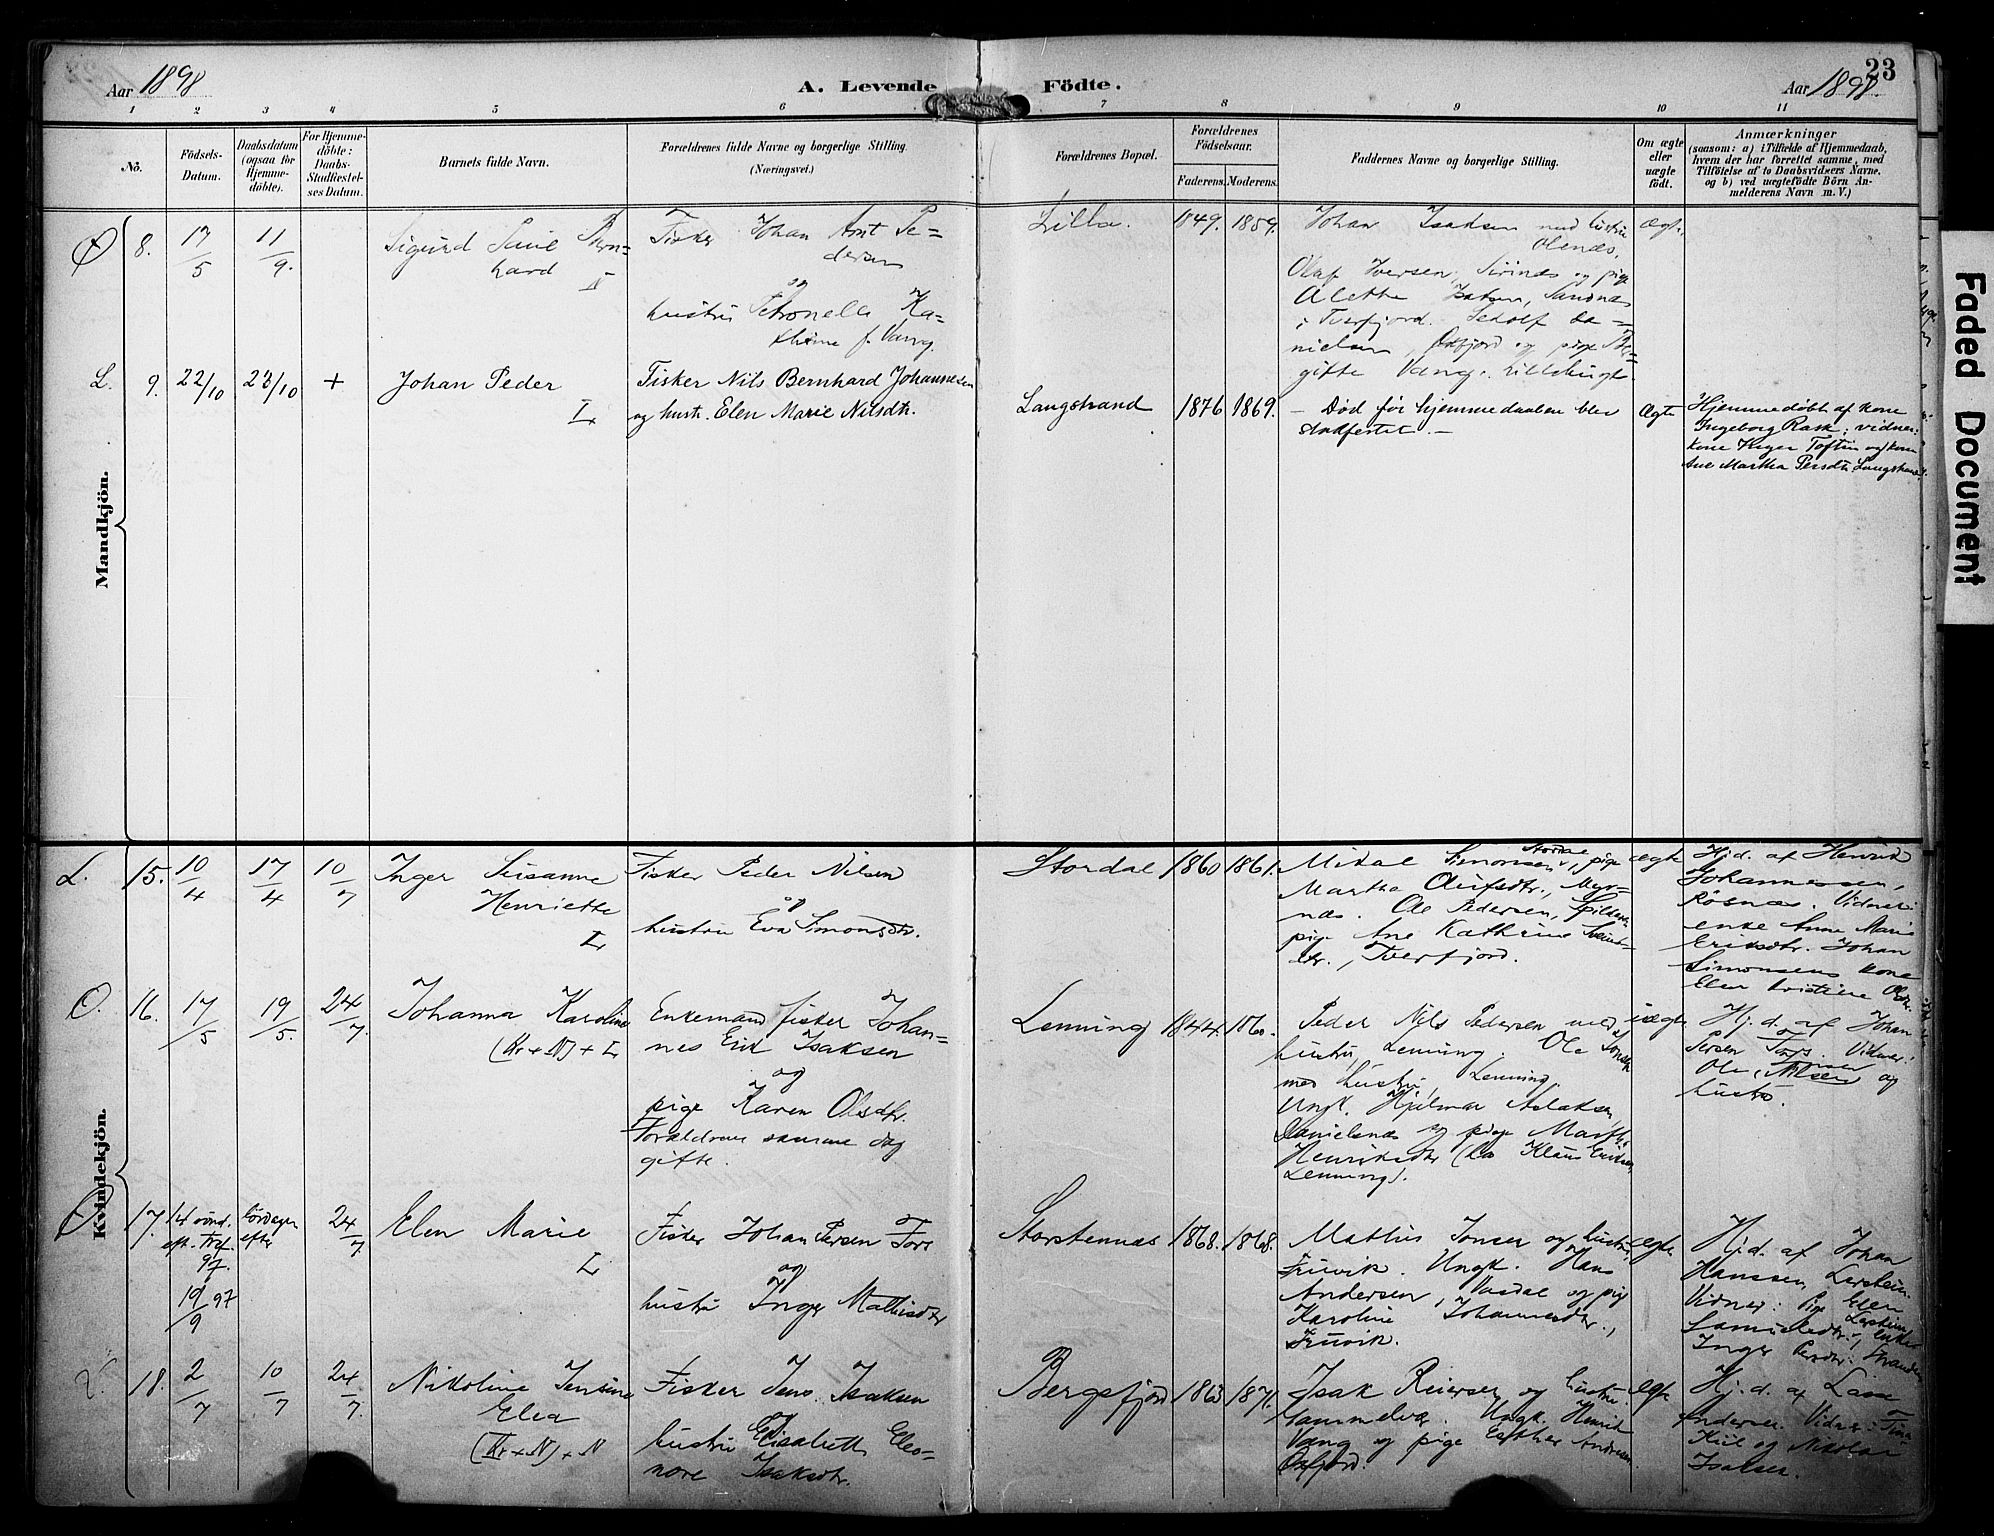 Aar 1898
A. Levende Födte.
Aar 1898.
23
1 2 3 4 5 6 7 8 9 10 11
No.
Födsels-
Datum.
Daabsdatum
(ogsaa för
Hjemme-
döbte).
For Hjemme-
döbte:
Daabs-
Stadfæstel-
ses Datum.
Barnets fulde Navn.
Forældrenes fulde Navne og borgerlige Stilling.
(Næringsvei.)
Forældrenes Bopæl.
Forældrenes
Födselsaar.
Faderens. Moderens.
Faddernes Navne og borgerlige Stilling.
Om ægte
eller
uægte
födt.
Anmærkninger
(saasom: a) i Tilfælde af Hjemmedaab,
hvem der har forrettet samme, med
Tilföielse af to Daabsvidners Navne,
og b) ved uægtefödte Börn An-
melderens Navn m. V.)
Mandkjön.
8.
17/5
11/9.
Sigurd
hard
Fisker Johan Arnt Pe-
dersen
og
hustru Petronella Ka-
thrine f. Vang.
Lilla.
1849. 1859.
Johan Isaksen med hustru
Olenæs,
Olaf Iversen, og pige
Alette Isaksen, Sandnæs
i Tverfjord. Da-
nielsen, Øxfjord og pige
gifte Vang,
Ægte.
L.
9.
22/10
23/10
+
Johan Peder
L
Fisker Nils Bernhard Johannesen
og hust. Elen Marie Nilsdtr.
Langstrand
1876 1869.
— Død før hjemmedaaben blev
stadfestet. —
Ægte
Hjemmedøbt af kone
Ingeborg Rask; vidner:
kone Toften og kone
Ane Martha Persdtr Langstrand.
Kvindekjön.
L.
15.
10/4
17/4
10/7
Inger Susanne
Henriette
L
Fisker Peder Nilsen
og
hustru Eva Simonsdtr.
Stordal
1860 1861.
Mikal Simonsen, Stordal, pige
Martha Olufsdtr., Myr-
næs. Ole Pedersen,
pige Ane Kathrine
dtr., Tverfjord.
ægte
Hj.d. af Henrik
Johannessen,
Røsnæs. Vidner:
enke Anne Marie
Eriksdtr. Johan
Simonsens kone
Elen Kristine
O.
16.
17/5
19/5.
24/7.
Johanna Karoline
(Kv + N) + L
Enkemand fisker Johan-
nes Erik Isaksen
og
pige Karen Olsdtr.
Forældrene samme dag
gifte.
Lenning
1844. 1860.
Peder Nils Pedersen med
hustru, Lenning. Ole
med hustru, Lenning.
Ungk. Hjalmar Aslaksen
Danielsnæs og pige
Henriksdtr Klaus Eriksen
Lenning).
uægte
Hj.d. af Johan
Persen Fors. Vidner:
Ole Nilsen og
hustru.
Ø
17.
14 sønd.
eft. Tref.
97.
19/9 97
Lørdagen
efter
24/7.
Elen Marie
L
Fisker Johan Persen Fors
og
hustru Inger Mathisdtr
Storstennæs
1868. 1868.
Mathis Jonsen og hustru
Fruvik. Ungk. Hans
Andersen, og pige
Karoline Johannesdtr.,
Fruvik.
ægte
Hj.d. af Johan
Hanssen,
Vidner: Pige Elen
Samuelsdtr., enke
Inger Persdtr.
18.
2/7
10/7
24/7.
Nikoline Jensine
Elea
(Kv + N) + N
Fisker Jens Isaksen
og
hustru Elisabeth Eleo-
nore Isaksdtr.
Bergsfjord
1863 1871.
Isak Reiersen og hustru
Gammelvær. Ungk. Henrik
Vang og pige Esther Andersen
Øxfjord.
ægte
Hj.d. af Lasse
Andersen. Vidner: Fina
Kiil og Nikolai
Isaksen.
Faded Document